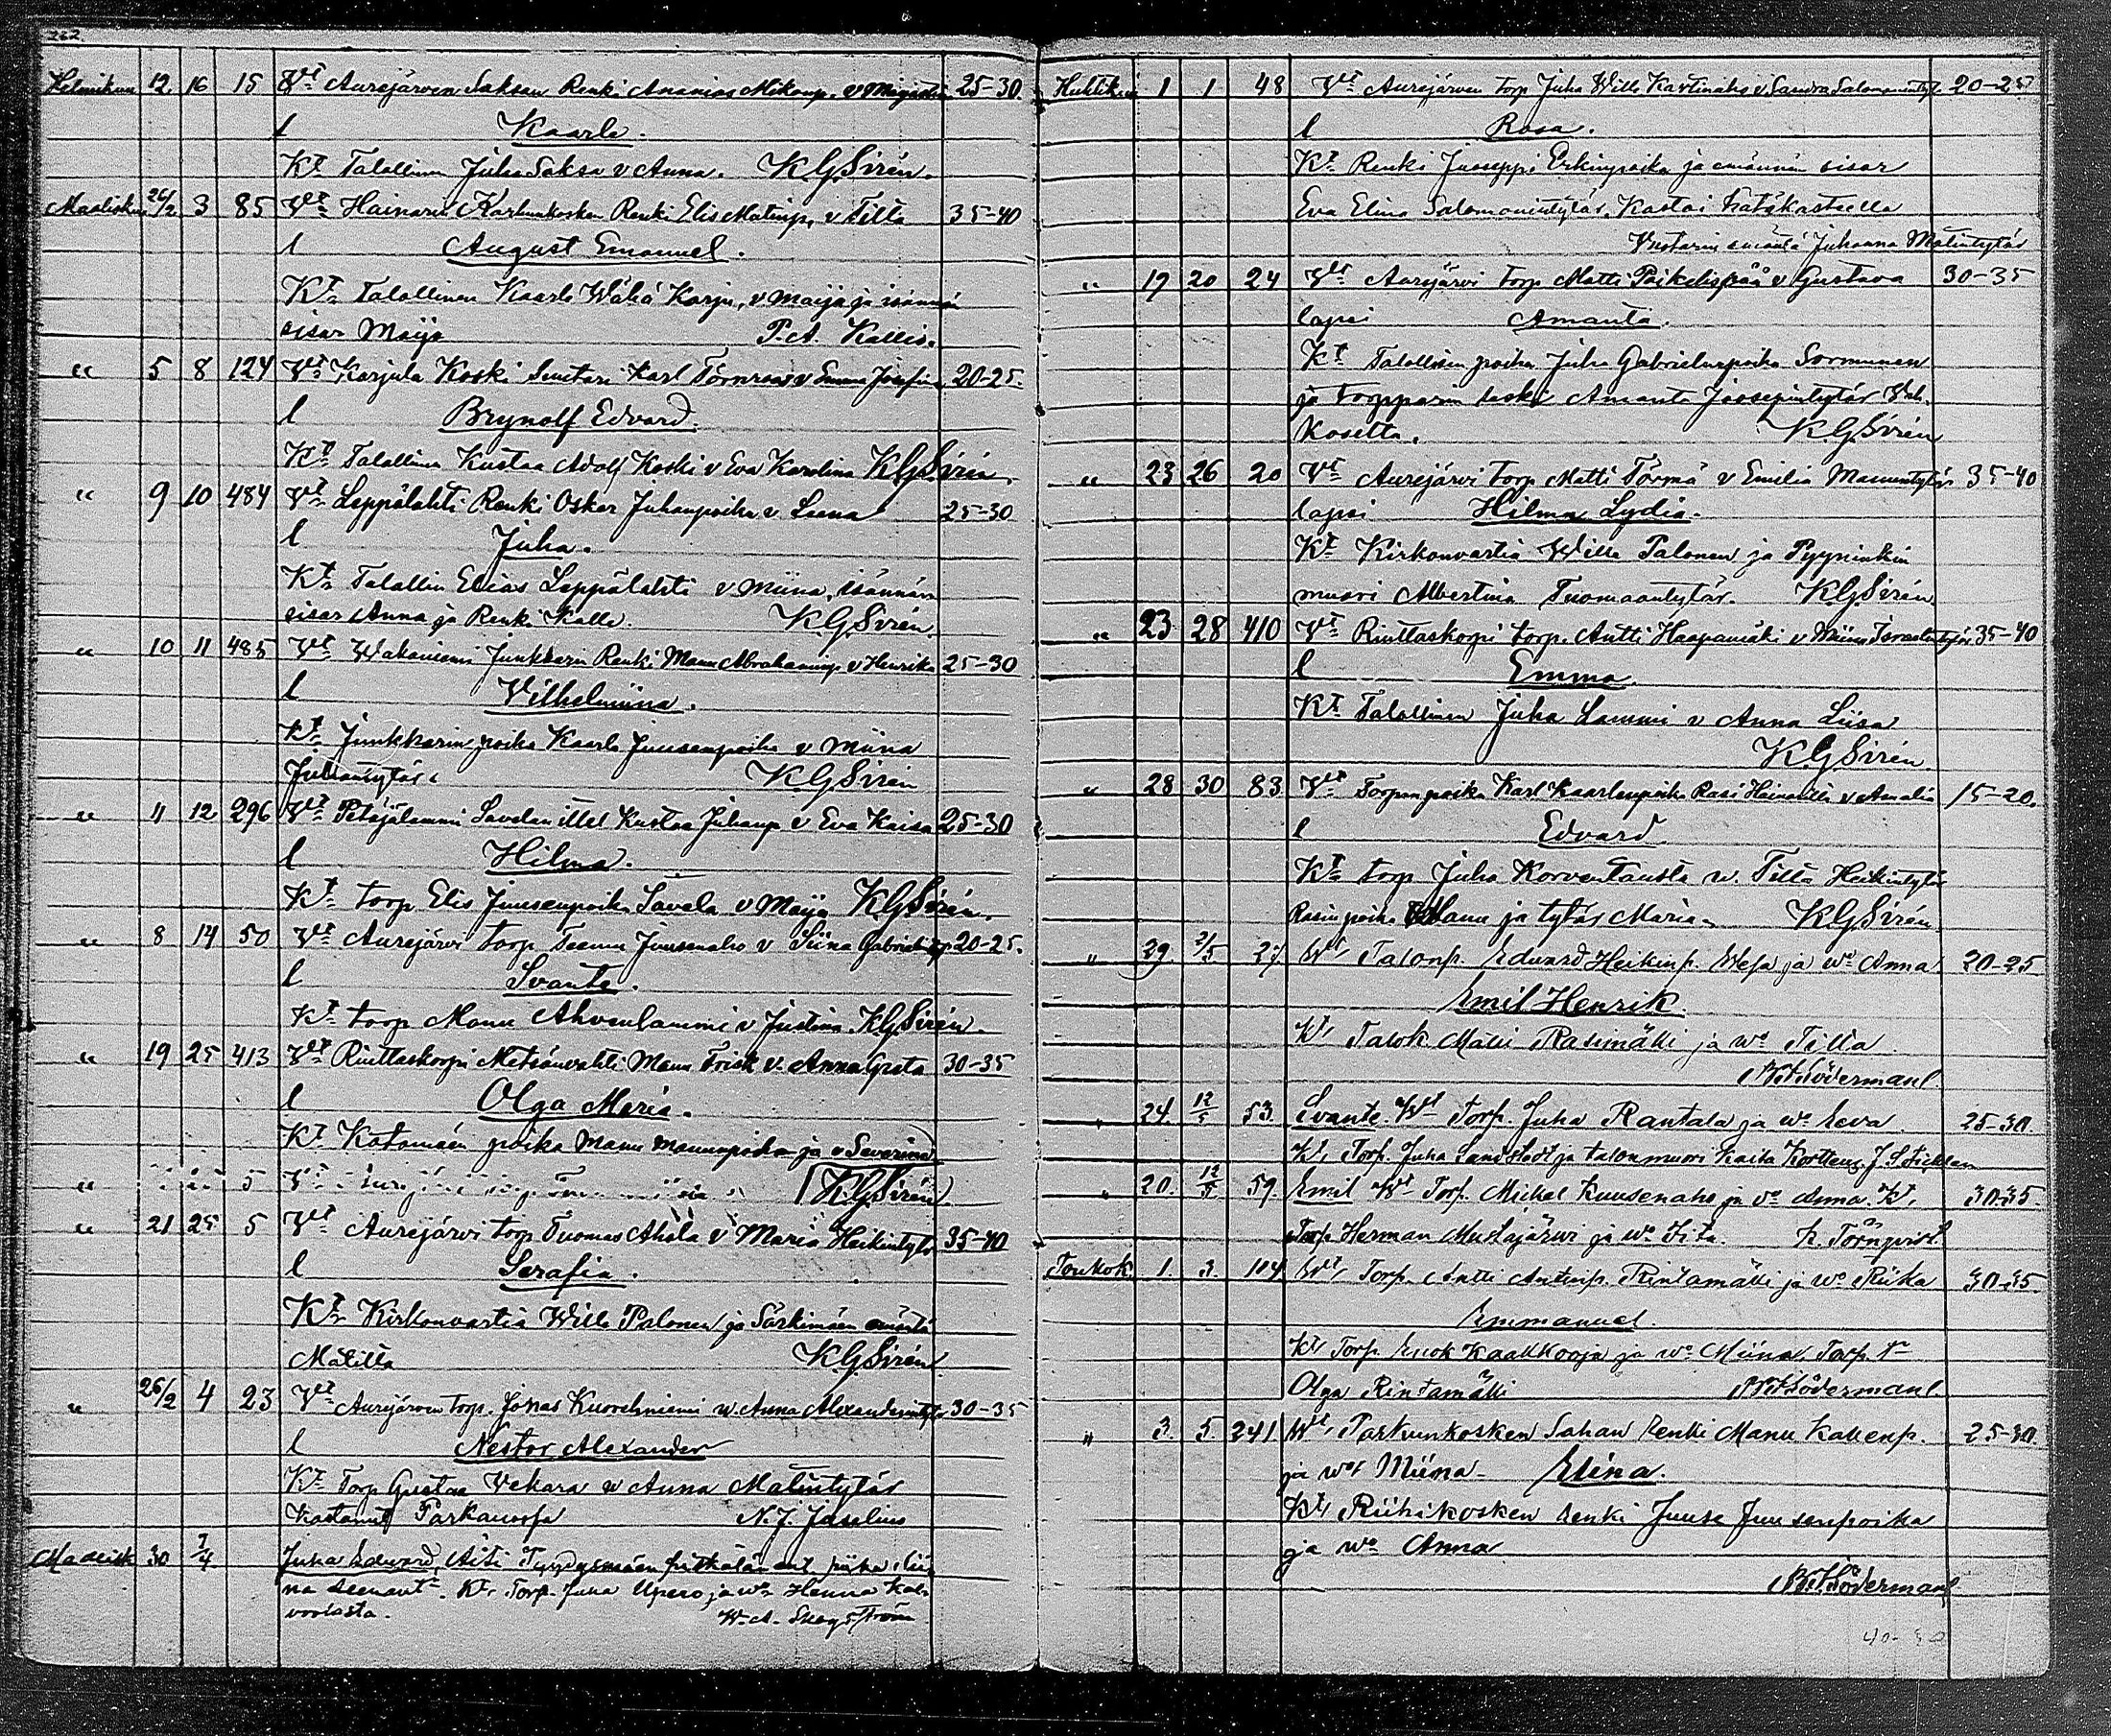 262.
Helmikuu 12 16 15 Vt Aurejärven Saksan Renki Ananias Mikonp. v 25-30.
l Kaarle.
Kt Talollinen Juha Saksa v Anna. K.G.Sirén.
Maalisk. 26/2 3 85 Vt Hainarin Karhunkosken Renki Elis Matinp. v Tilta 35-40
l August Emanuel.
Kt Talollinen Kaarle Wähä Karju, v Maija ja isännän
sisar Maija P.A. Kallio.
" 5 8 124 Vt Karjula Koski Karl Törnroos v Emma Josefina 20-25.
l Brynolf Edvard.
Kt Talollinen Kustaa Adolf Koski v Eva Karolina K.G.Sirén.
" 9 10 484 Vt Leppälahti Renki Oskar Juhanpoika v Leena 25-30
l Juha.
Kt Talollin Elias Leppälahti v Miina, isännän
sisar Anna ja Renki Kalle. K.G.Sirén.
" 10 11 485 Vt Junkkarin Renki Manu Abrahaminp. v Henrika 25-30
l Vilhelmiina.
Kt Junkkarin poika Kaarle Juusenpoika v Miina
Juhantytär K.G.Sirén
" 11 12 296 Vt Petäjälammi Savelan Kustaa Juhanp v Eva Kaisa 25-30
l Hilma.
Kt torp Elis Juusenpoika Savela v Maija K.G.Sirén.
" 8 14 50 Vt Aurejärvi torp Teemu Juusenaho v Stina 20-25.
l Svante.
Kt torp Manu Ahvenlammi v Justina K.G.Sirén.
" 19 25 413 Vt Riuttaskorpi Metsänvahti Manu Frisk v. Anna Greta 30-35
l Olga Maria.
Kt Katamaen poika Manu Manunpoika ja v Severina
" 5 K.G.Sirén
" 21 25 5 Vt Aurejärvi torp Tuomas Ahola v Maria Heikintytär 35-40
l Serafia.
Kt Kirkonvartia Wille Palonen ja Särkimäen emäntä
Matilta K.G.Sirén
" 26/2 4 23 Vt Aurejärven torp. Jonas Kuorehniemi w. Anna Alexanderintytär 30-35
l Nestor Alexander
Kt Torp Gustaa Vekara w Anna Matintytär
Kastanut Parkanossa N.J. Jaselius
Maalisk 30 7/4 Juha Edward, Äiti
Kt. Torp. Juha Upero ja wo Henna
W.A. Skogström
Huhtikuu 1 1 48 Vt Aurejärven torp Juha Wille Kartinaho v. Sandra Salomonintyt. 20-25
l Rosa.
Kt Renki Juoseppi Erkinpoika ja emännän sisar
Eva Elina Salomonintytär. Kastoi hätäkasteella
emäntä Juhanna Matintytär
" 17 20 24 Vt Aurejärvi torp Matti Poikelispää v Gustava 30-35
lapsi Amanta.
Kt Talollisen poika Juha Gabrielinpoika Sormunen
ja torpparin leski Amanta Joosepintytär
K.G.Sirén
" 23 26 20 Vt Aurejärvi torp Matti Törmä v Emilia Manuntytär 35-40
lapsi Hilma Lydia.
Kt Kirkonvartia Wille Palonen ja Pyyninkin
muori Albertina Tuomaantytär. K.G.Sirén.
" 23 28 410 Vt Riuttaskorpi torp. Antti Haapamäki v Miina Israelintytär 35-40
l Emma.
Kt Talollinen Juha Lammi v Anna Liisa
K.G.Sirén.
" 28 30 83 Vt Torpan poika Karl Kaarlenpoika Rasi v Amalia 15-20.
l Edvard
Kt torp Juha Korventausta w. Tilta Heikintytär
Rasin poika Manu ja tytär Maria. K.G.Sirén.
" 29. 2/5 27 Wt Talonp. Eduard Heikinp. ja wo Anna 20-25
Emil Henrik.
Kt Talok Matti Rasimäki ja wo Tilta
Södermanl
" 24. 12/5 53. Svante. Wt Torp. Juha Rantala ja wo Eeva. 25-30.
Kt Torp. Juha Sandstedt ja talonmuori Kaisa
" 20. 12/5 59. Emil Wt Torp. Mickel Kuusenaho ja vo Anna. Kt. 30-35.
Torp. Herman Mustajärwi ja wo Fita. K. Törnqvist.
Toukok. 1. 3. 104 Wt Torp. Antti Antinp. Rintamäki ja wo Riika 30-35.
Emmanuel.
Kt Torp. Enok Kaakkooja ja wo Miina, Torp. tr
Olga Rintamäki Södermanl.
" 3. 5. 241 Wt Parkunkosken Sahan renki Manu Kallenp. 25-30.
ja wo Miina Elina.
Kt Riihikosken renki Juuse Juusenpoika
ja wo Anna
Södermanl